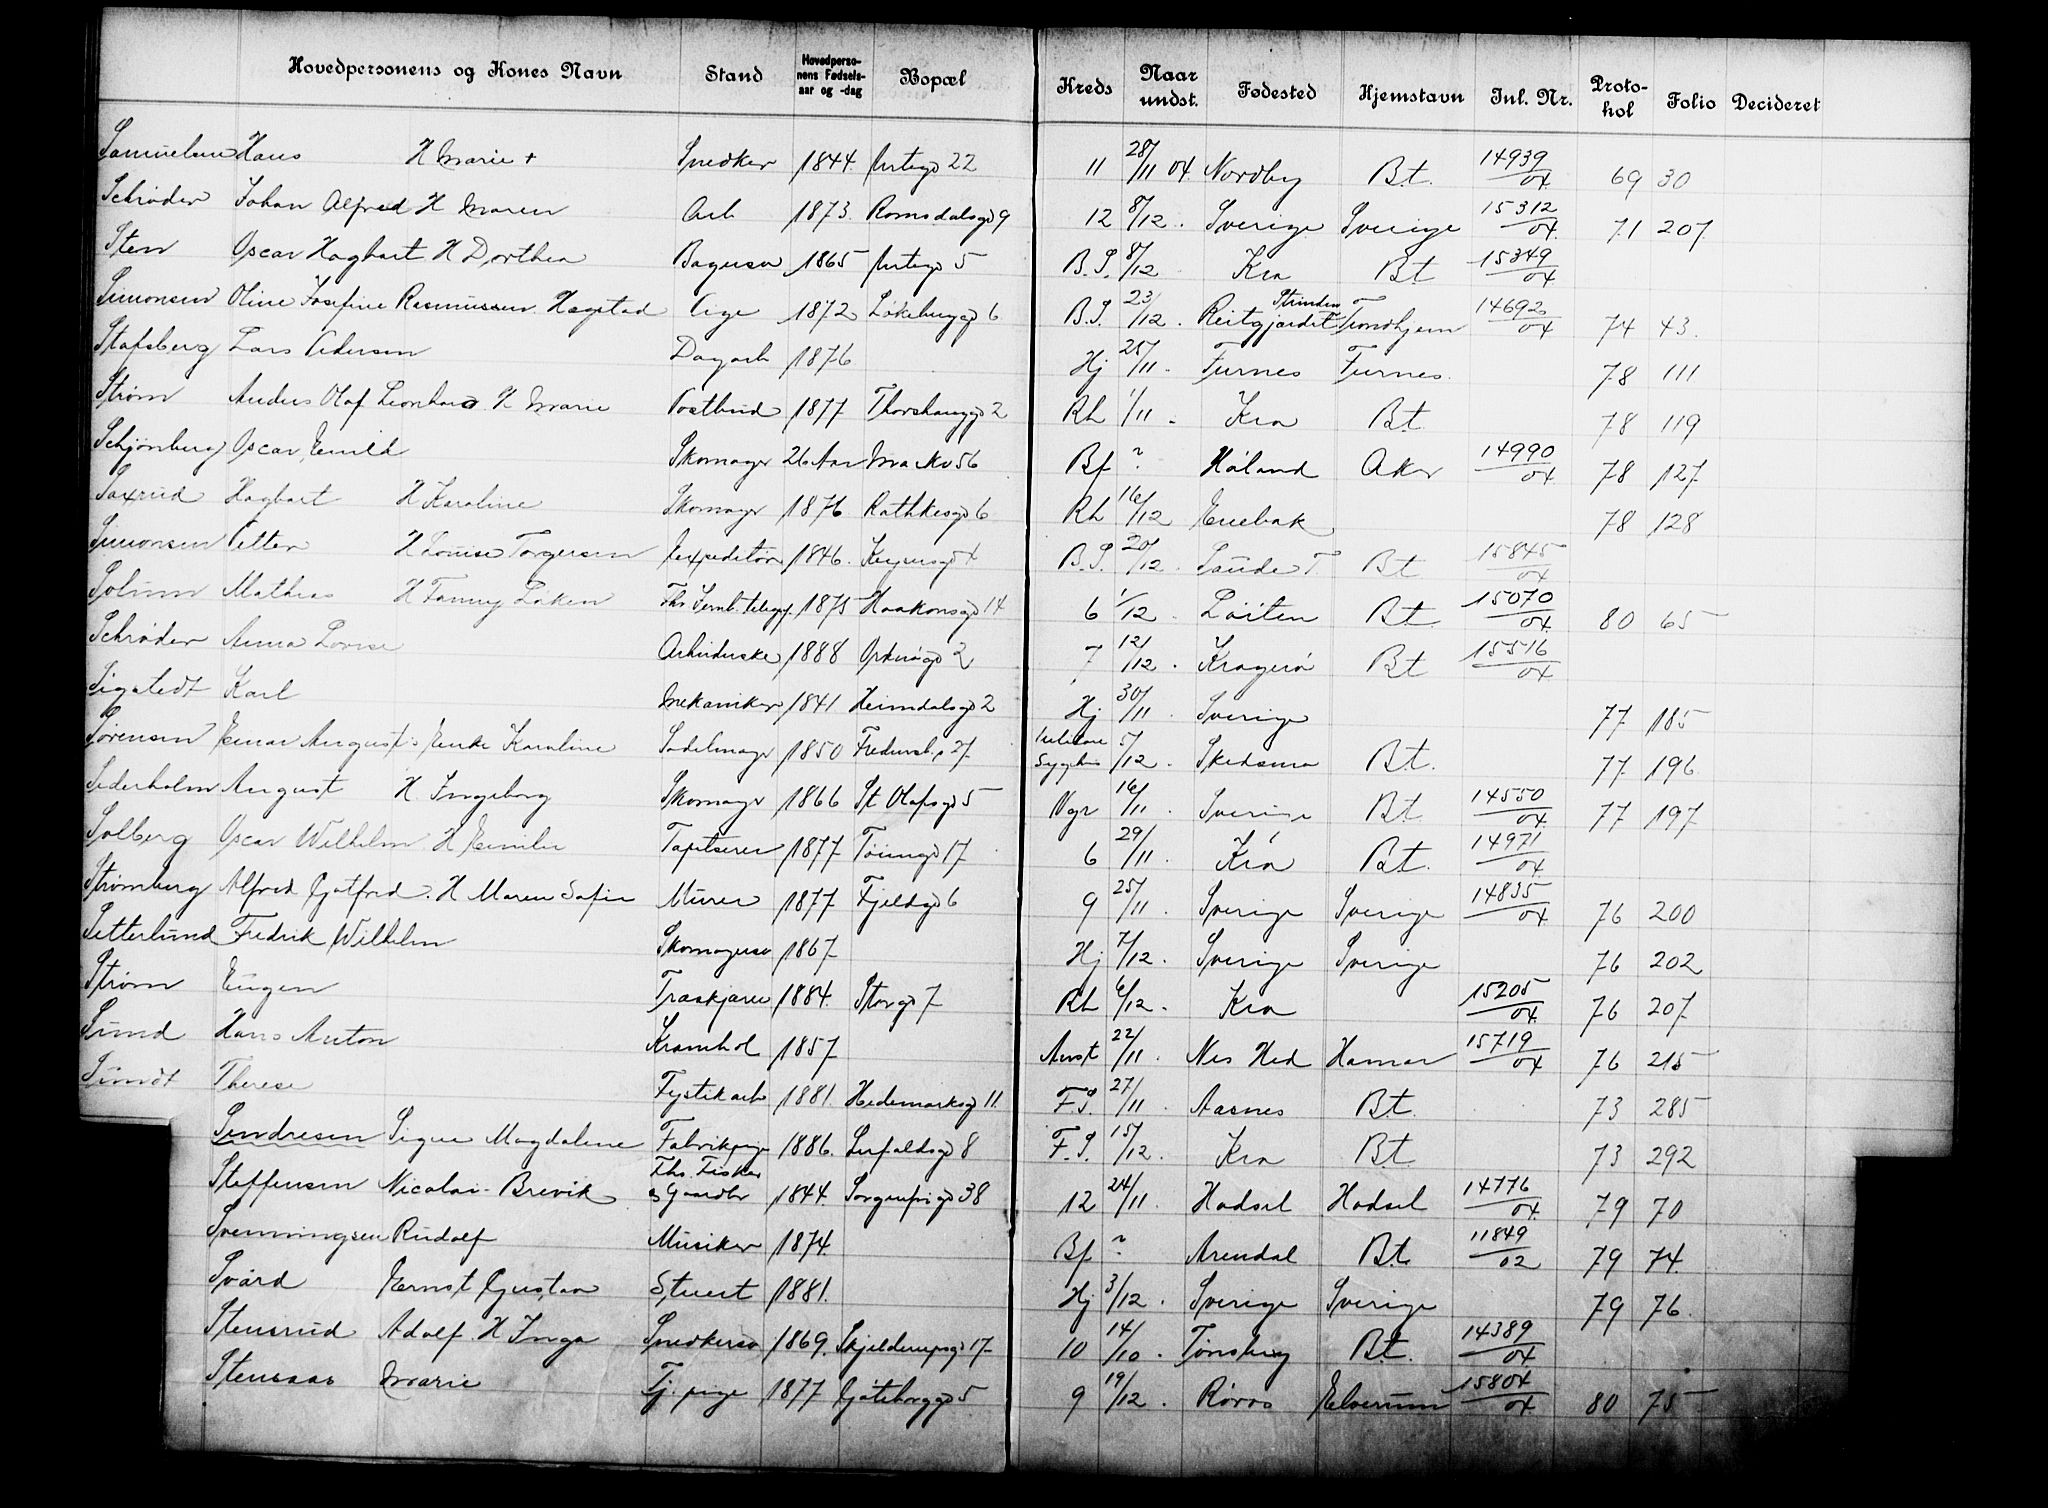 Hovedpersonens og Kones Navn Stand Hovedpersonens Fødselsaar og -dag Bopæl Kreds Naar undst. Fødested Hjemstavn Inl. Nr. Protokol Folio Decideret
Samuelsen Hans H Marie + Snedker 1844. Urtegd 22 11 28/11 04. Nordby B.t. 14939/04 69 30
Schrøder Johan Alfred H Maren Arb 1873. Romsdalsgd 9 12 8/12. Sverige Sverige 15312/04. 71 207.
Sten Oscar Hagbart H Dorthea Bagersv 1865 Urtegd 5 B.S. 8/12 Kra Bt 15349/04
Simonsen Oline Josefine Rasmussen Hagstad Pige 1872 Løkebergg 6 B.S. 23/12. Reitgjerdet Strinden T Trondhjem 14692/04 74 43.
Stafsberg Lars Pedersen Dagarb 1876 Hj 25/11. Furnes Furnes. 78 111
Strøm Anders Olaf Leonhard H Marie Postbud 1877 Thorshauggd 2 Rh 1/11. Kra B.t. 78 119
Schjønberg Oscar Emild Skomager 26 Aar Markv 56 Bf ? Høland Aker 14990/04. 78 127
Saxrud Hagbart H Karoline Skomagr 1876 Rathkesgd 6 Rh 16/12 Enebak 78 128
Simonsen Petter H Louise Torgersen Expeditør 1846. Keysersgd 4 B.S. 20/12. Saude T. Bt 15845/04
Solum Mathias H Fanny Løken Fhv Jernb. telegr. 1875 Haakonsgd 14 6 1/12. Løiten B.t. 15070/04. 80 65
Schrøder Anna Lovise Arbeiderske 1888 Orknøgd 2 7 12/12. Kragerø Bt 15516/04
Sigstedt Karl Mekaniker 1841 Heimdalsgd 2 Hj 30/11. Sverige 77 185
Sørensen Einar August's Enke Karoline Sadelmagr 1850 Fredensb. 27 Sygehus 5/12. Skedsmo B.t. 77 196
Sederholm August H. Ingeborg Skomagr 1866 St Olafsgd 5 Vgr 16/11. Sverige B.t. 14550/04. 77 197
Solberg Oscar Wilhelm H Emilie Tapetserer 1877 Tøiengd 17 6 29/11. Kra B.t. 14971/04.
Strømberg Alfred Gotfred. H Maren Sofie Murer 1877 Fjeldgd 6 9 25/11. Sverige Sverige 14835/04. 76 200
Setterlund Fredrik Wilhelm Skomagersv 1867 Hj 7/12. Sverige Sverige 76 202
Strøm Eugen Træskjærer 1884. Storgd 7 Rh 6/12. Kra 15205/04. 76 207
Sund Hans Anton Kramhdl 1857 Anst 22/11. Nes Hed Hamar 15719/04 76 215
Sundt Therese Fystikarb 1881. Hedemarksgd 11. F.S. 27/11. Aasnes B.t. 73 285
Sindresen Signe Magdalene Fabrikpige 1886. Lerfaldsgd 8 F.S. 15/12. Kra B.t. 73 292
Steffensen Nicolai Brevik Fhv. Fisker & Gaardbr 1844. Sorgenfrigd 38 12 24/11. Hadsel Hadsel 14776/04. 79 70
Svenningsen Rudolf Musiker 1874. Bf ? Arendal B.t. 11849/02 79 74.
Svård Ernst Gustav Stuert 1881. Hj 3/12. Sverige Sverige 79 76.
Stensrud Adolf H Inga Snedkersv 1869. Skjelderupsgd 17 10 14/10. Tønsberg B.t. 14389/04.
Stensaas Marie Tj. pige 1877 Gøteborggd 5 9 19/12. Røros Elverum 15804/04. 80 75